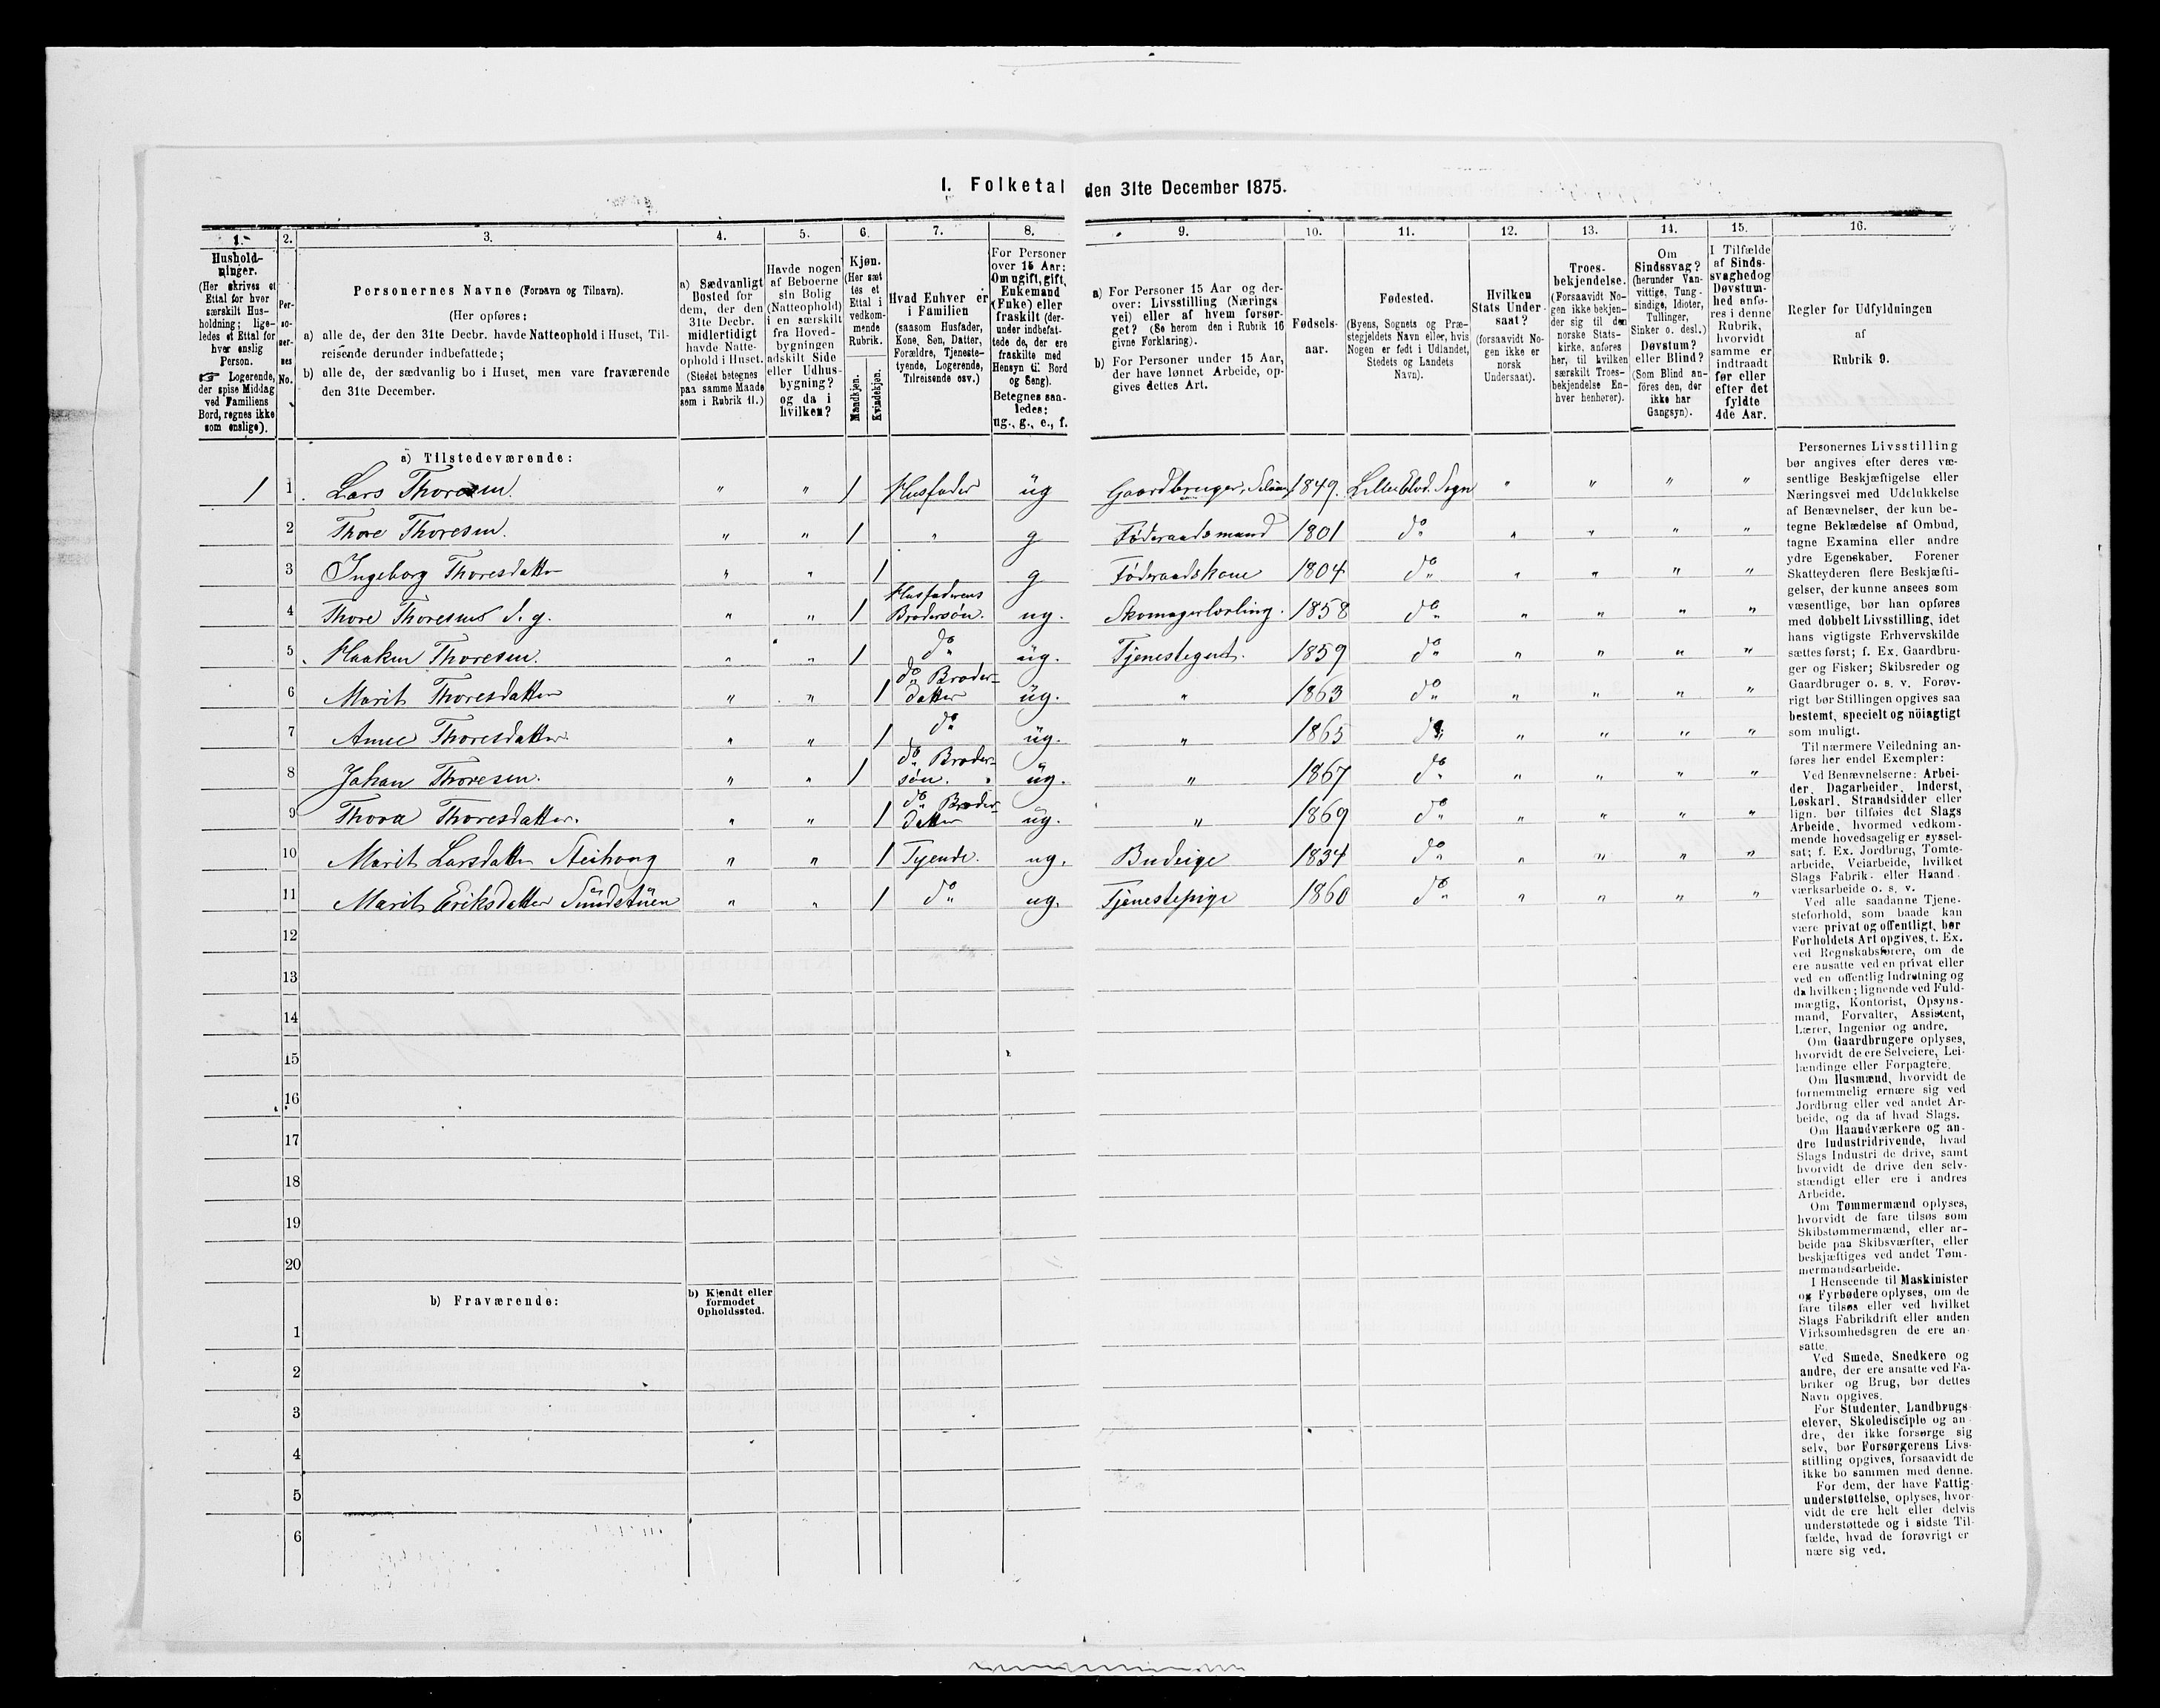 1. Folketal den 31te December 1875.
1.
Hushold-
ninger.
(Her skrives et
Ettal for hver
særskilt Hus-
holdning; lige-
ledes et Ettal for
hver enslig
Person.
☞ Logerende,
der spise Middag
ved Familiens
Bord, regnes ikke
som enslige).
2.
Per-
so-
ner-
nes
No.
3.
Personernes Navne (Fornavn og Tilnavn).
(Her opføres:
a) alle de, der den 31te Decbr. havde Natteophold i Huset, Til-
reisende derunder indbefattede;
b) alle de, der sædvanlig bo i Huset, men vare fraværende
den 31te December.
4.
a) Sædvanligt
Bosted for
dem, der den
31te Decbr.
midlertidigt
havde Natte-
ophold i Huset.
(Stedet betegnes
paa samme Maade
som i Rubrik 11.)
5.
Havde nogen
af Beboerne
sin Bolig
(Natteophold)
i en særskilt
fra Hoved-
bygningen
adskilt Side
eller Udhus-
bygning?
og da i
hvilken?
6.
Kjøn.
(Her sæt
tes et
Ettal i
vedkom-
mende
Rubrik.
Mandkjøn.
Kvindekjøn.
7.
Hvad Enhver er
i Familien
(saasom Husfader,
Kone, Søn, Datter,
Forældre, Tjeneste-
tyende, Logerende,
Tilreisende osv.)
8.
For Personer
over 15 Aar:
Om ugift, gift,
Enkemand
(Enke) eller
fraskilt (der-
under indbefat-
tede de, der ere
fraskilte med
Hensyn til Bord
og Seng).
Betegnes saa-
ledes:
ug., g., e., f.
9.
a) For Personer 15 Aar og der-
over: Livsstilling (Nærings
vei) eller af hvem forsør-
get? (Se herom den i Rubrik 16
givne Forklaring).
b) For Personer under 15 Aar,
der have lønnet Arbeide, op-
gives dettes Art.
10.
Fødsels-
aar.
11.
Fødested.
(Byens, Sognets og Præ-
stegjeldets Navn eller, hvis
Nogen er født i Udlandet,
Stedets og Landets
Navn).
12.
Hvilken
Stats Under-
saat?
(forsaavidt No-
gen ikke er
norsk
Undersaat).
13.
Troes-
bekjendelse.
(Forsaavidt No-
gen ikke bekjen-
der sig til den
norske Stats-
kirke, anføres
her, til hvilken
særskilt Troes-
bekjendelse En-
hver henhører).
14.
Om
Sindssvag?
(herunder Van-
vittige, Tung-
sindige, Idioter,
Tullinger,
Sinker o. desl.)
Døvstum?
eller Blind?
(Som Blind an-
føres den, der
ikke har
Gangsyn).
15.
I Tilfælde
af Sinds-
svaghed og
Døvstum-
hed anfø-
res i denne
Rubrik,
hvorvidt
samme er
indtraadt
før eller
efter det
fyldte
4de Aar.
16.
Regler for Udfyldningen
af
Rubrik 9.
a) Tilstedeværende:
1 1 Lars Thoresen. " " 1 Husfader ug Gaardbruger, 1849. Sogn " " " "
2 Thore Thoresen. " " 1 " g Føderaadsmand 1801 do " " " "
3 Ingeborg Thoresdatter " " 1 g Føderaadskone 1804 do " " " "
4 Thore Thoresen d. y. " " 1 Husfaderens Brodersøn. ug. Skomagerlærling. 1858 do " " " "
5 Haaken Thoresen. " " 1 do ug. Tjenestegut. 1859 do " " " "
6 Marit Thoresdatter " " 1 do Broder-datter ug. " 1863 do " " " "
7 Anne Thoresdatter. " " 1 do ug. " 1865 do " " " "
8 Johan Thoresen. " " 1 do Broder-søn. ug. " 1867 do " " " "
9 Thora Thoresdatter. " " 1 do Broder-datter ug. " 1869 do " " " "
10 Marit Larsdatter " " 1 Tyende. ug. Budeige 1834 do " " " "
11 Marit Eriksdatter " " 1 do ug. Tjenestepige 1860 do " " " "
12
13
14
15
16
17
18
19
20
b) Fraværende:
b) Kjendt eller
formodet
Opholdssted.
1
2
3
4
5
6
Personernes Livsstilling
bør angives efter deres væ-
sentlige Beskjæftigelse eller
Næringsvei med Udelukkelse
af Benævnelser, der kun be-
tegne Beklædelse af Ombud,
tagne Examina eller andre
ydre Egenskaber. Forener
Skatteyderen flere Beskjæfti-
gelser, der kunne ansees som
væsentlige, bør han opføres
med dobbelt Livsstilling, idet
hans vigtigste Erhvervskilde
sættes først; f. Ex. Gaardbru-
ger og Fisker; Skibsreder og
Gaardbruger o. s. v. Forøv-
rigt bør Stillingen opgives saa
bestemt, specielt og nöiagtigt
som muligt.
Til nærmere Veiledning an-
føres her endel Exempler:
Ved Benævnelserne: Arbei-
der, Dagarbeider, Inderst,
Løskarl, Strandsidder eller
lign. bør tilføies det Slags
Arbeide, hvormed vedkom-
mende hovedsagelig er syssel-
sat; f. Ex. Jordbrug, Tomte-
arbeide, Veiarbeide, hvilket
Slags Fabrik- eller Haand-
værksarbeide o. s. v.
Ved alle saadanne Tjene-
steforhold, som baade kan
være privat og offentligt, bør
Forholdets Art opgives, t. Ex.
ved Regnskabsførere, om de
ere ansatte ved en privat eller
ved en offentlig Indretning og
da hvilken; lignende ved Fuld-
mægtig, Kontorist, Opsyns-
mand, Forvalter, Assistent,
Lærer, Ingeniør og andre.
Om Gaardbrugere oplyses,
hvorvidt de ere Selveiere, Lei-
lændinge eller Forpagtere.
Om Husmænd, hvorvidt de
fornemmelig ernære sig ved
Jordbrug eller ved andet Ar-
beide, og da af hvad Slags.
Om Haandværkere og an-
dre Industridrivende, hvad
Slags Industri de drive, samt
hvorvidt de drive den selv-
stændigt eller ere i andres
Arbeide.
Om Tømmermænd oplyses,
hvorvidt de fare tilsøs som
Skibstømmermænd, eller ar-
beide paa Skibsværfter, eller
beskjæftiges ved andet Tøm-
mermandsarbeide.
I Henseende til Maskinister
og Fyrbødere oplyses, om de
fare tilsøs eller ved hvilket
Slags Fabrikdrift eller anden
Virksomhedsgren de ere an-
satte.
Ved Smede, Snedkere og
andre, der ere ansatte ved Fa-
briker og Brug, bør dettes
Navn opgives.
For Studenter, Landbrugs-
elever, Skoledisciple og an-
dre, der ikke forsørge sig
selv, bør Forsørgerens Livs-
stilling opgives, forsaavidt de
ikke bo sammen med denne.
For dem, der have Fattig-
understøttelse, oplyses, hvor-
vidt de ere helt eller delvis
understøttede og i sidste Til-
fælde, hvad de forøvrigt er
nære sig ved.